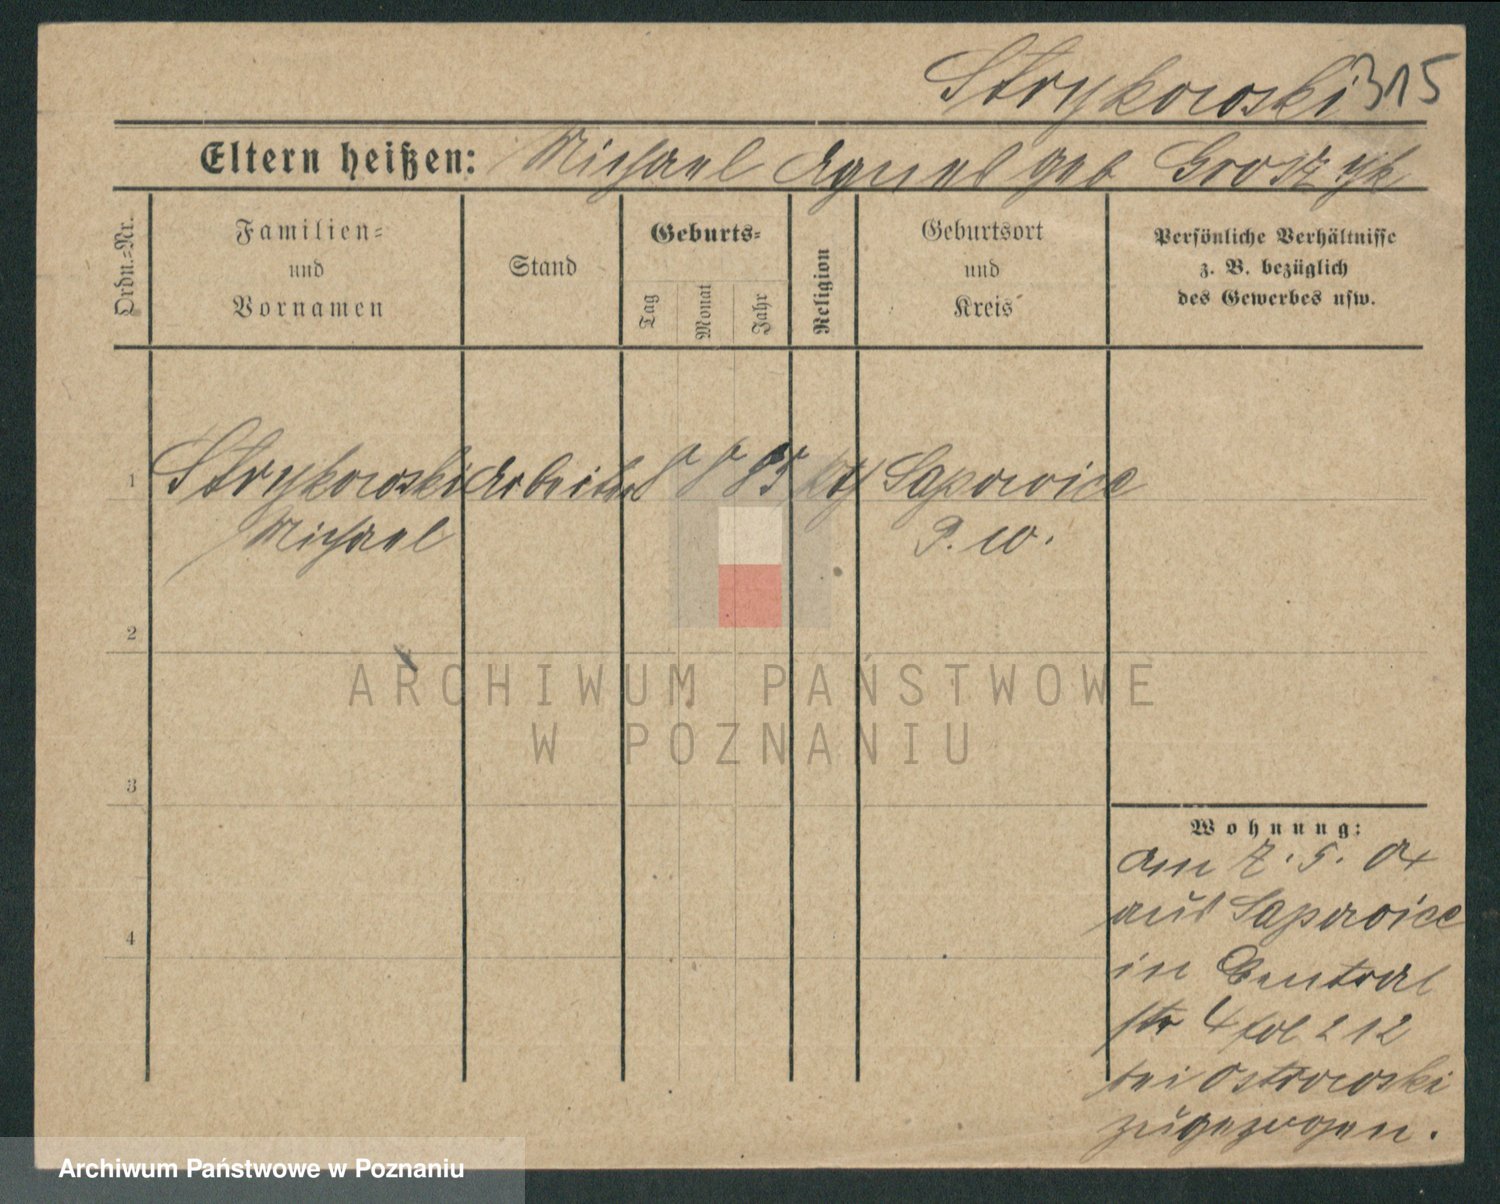 Strykowski 315
Eltern heißen: Michael Agnes geb Groszyk
Ordn.-Nr.
Familien-
und
Vornamen
Stand
Geburts-
Tag
Monat
Jahr
Religion
Geburtsort
und
Kreis
Persönliche Verhältnisse
z. B. bezüglich
des Gewerbes usw.
1 Strykowski Arbeiter 8 8 85 kth Sapowice
Michael P. W.
2
ARCHIWUM PAŃSTWOWE
W POZNANIU
3
Wohnung:
am 7. 5. 04
aus Sapowice
in Central
str 4 fol 212
bei Ostrowski
zugezogen.
4
Archiwum Państwowe w Poznaniu